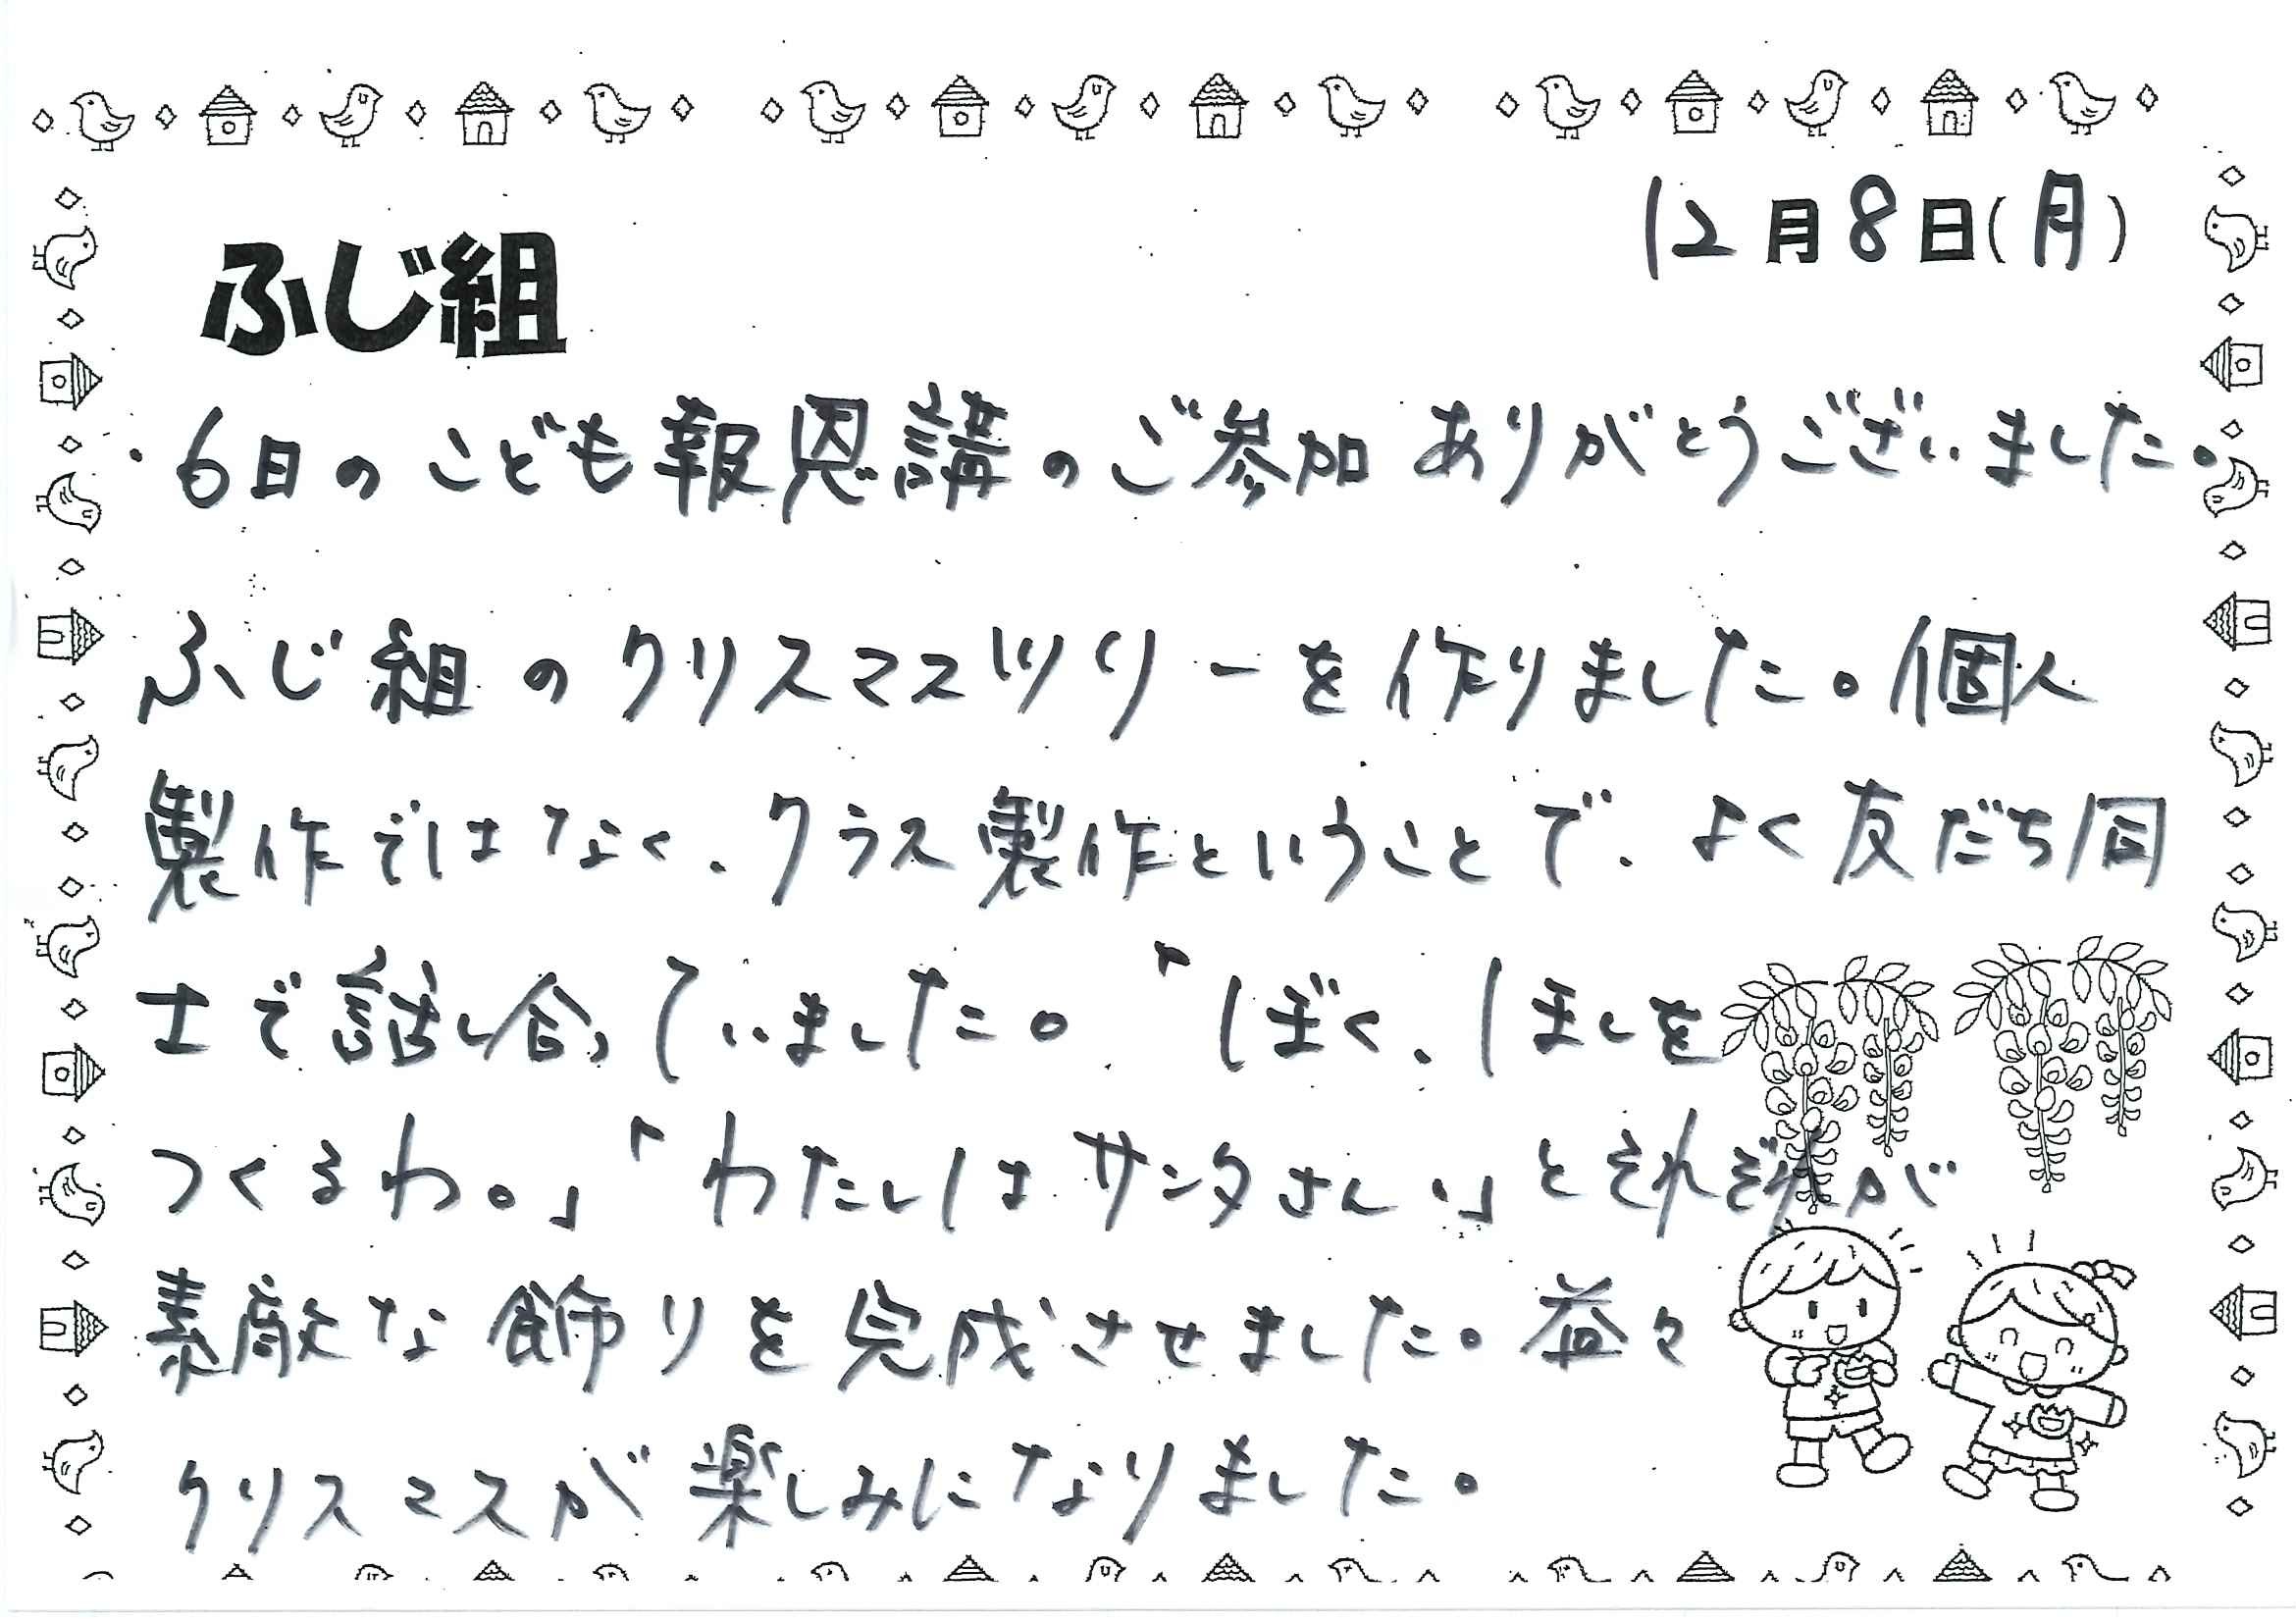 12月8日(月)
ふじ組
・6日のこども報恩講のご参加ありがとうございました。
ふじ組のクリスマスツリーを作りました。個人
製作ではなく、クラス製作ということで、よく友だち同
士で話し合っていました。「ぼく、ほしを
つくるわ。」「わたしはサンタさん。」とそれぞれが
素敵な飾りを完成させました。益々
クリスマスが楽しみになりました。